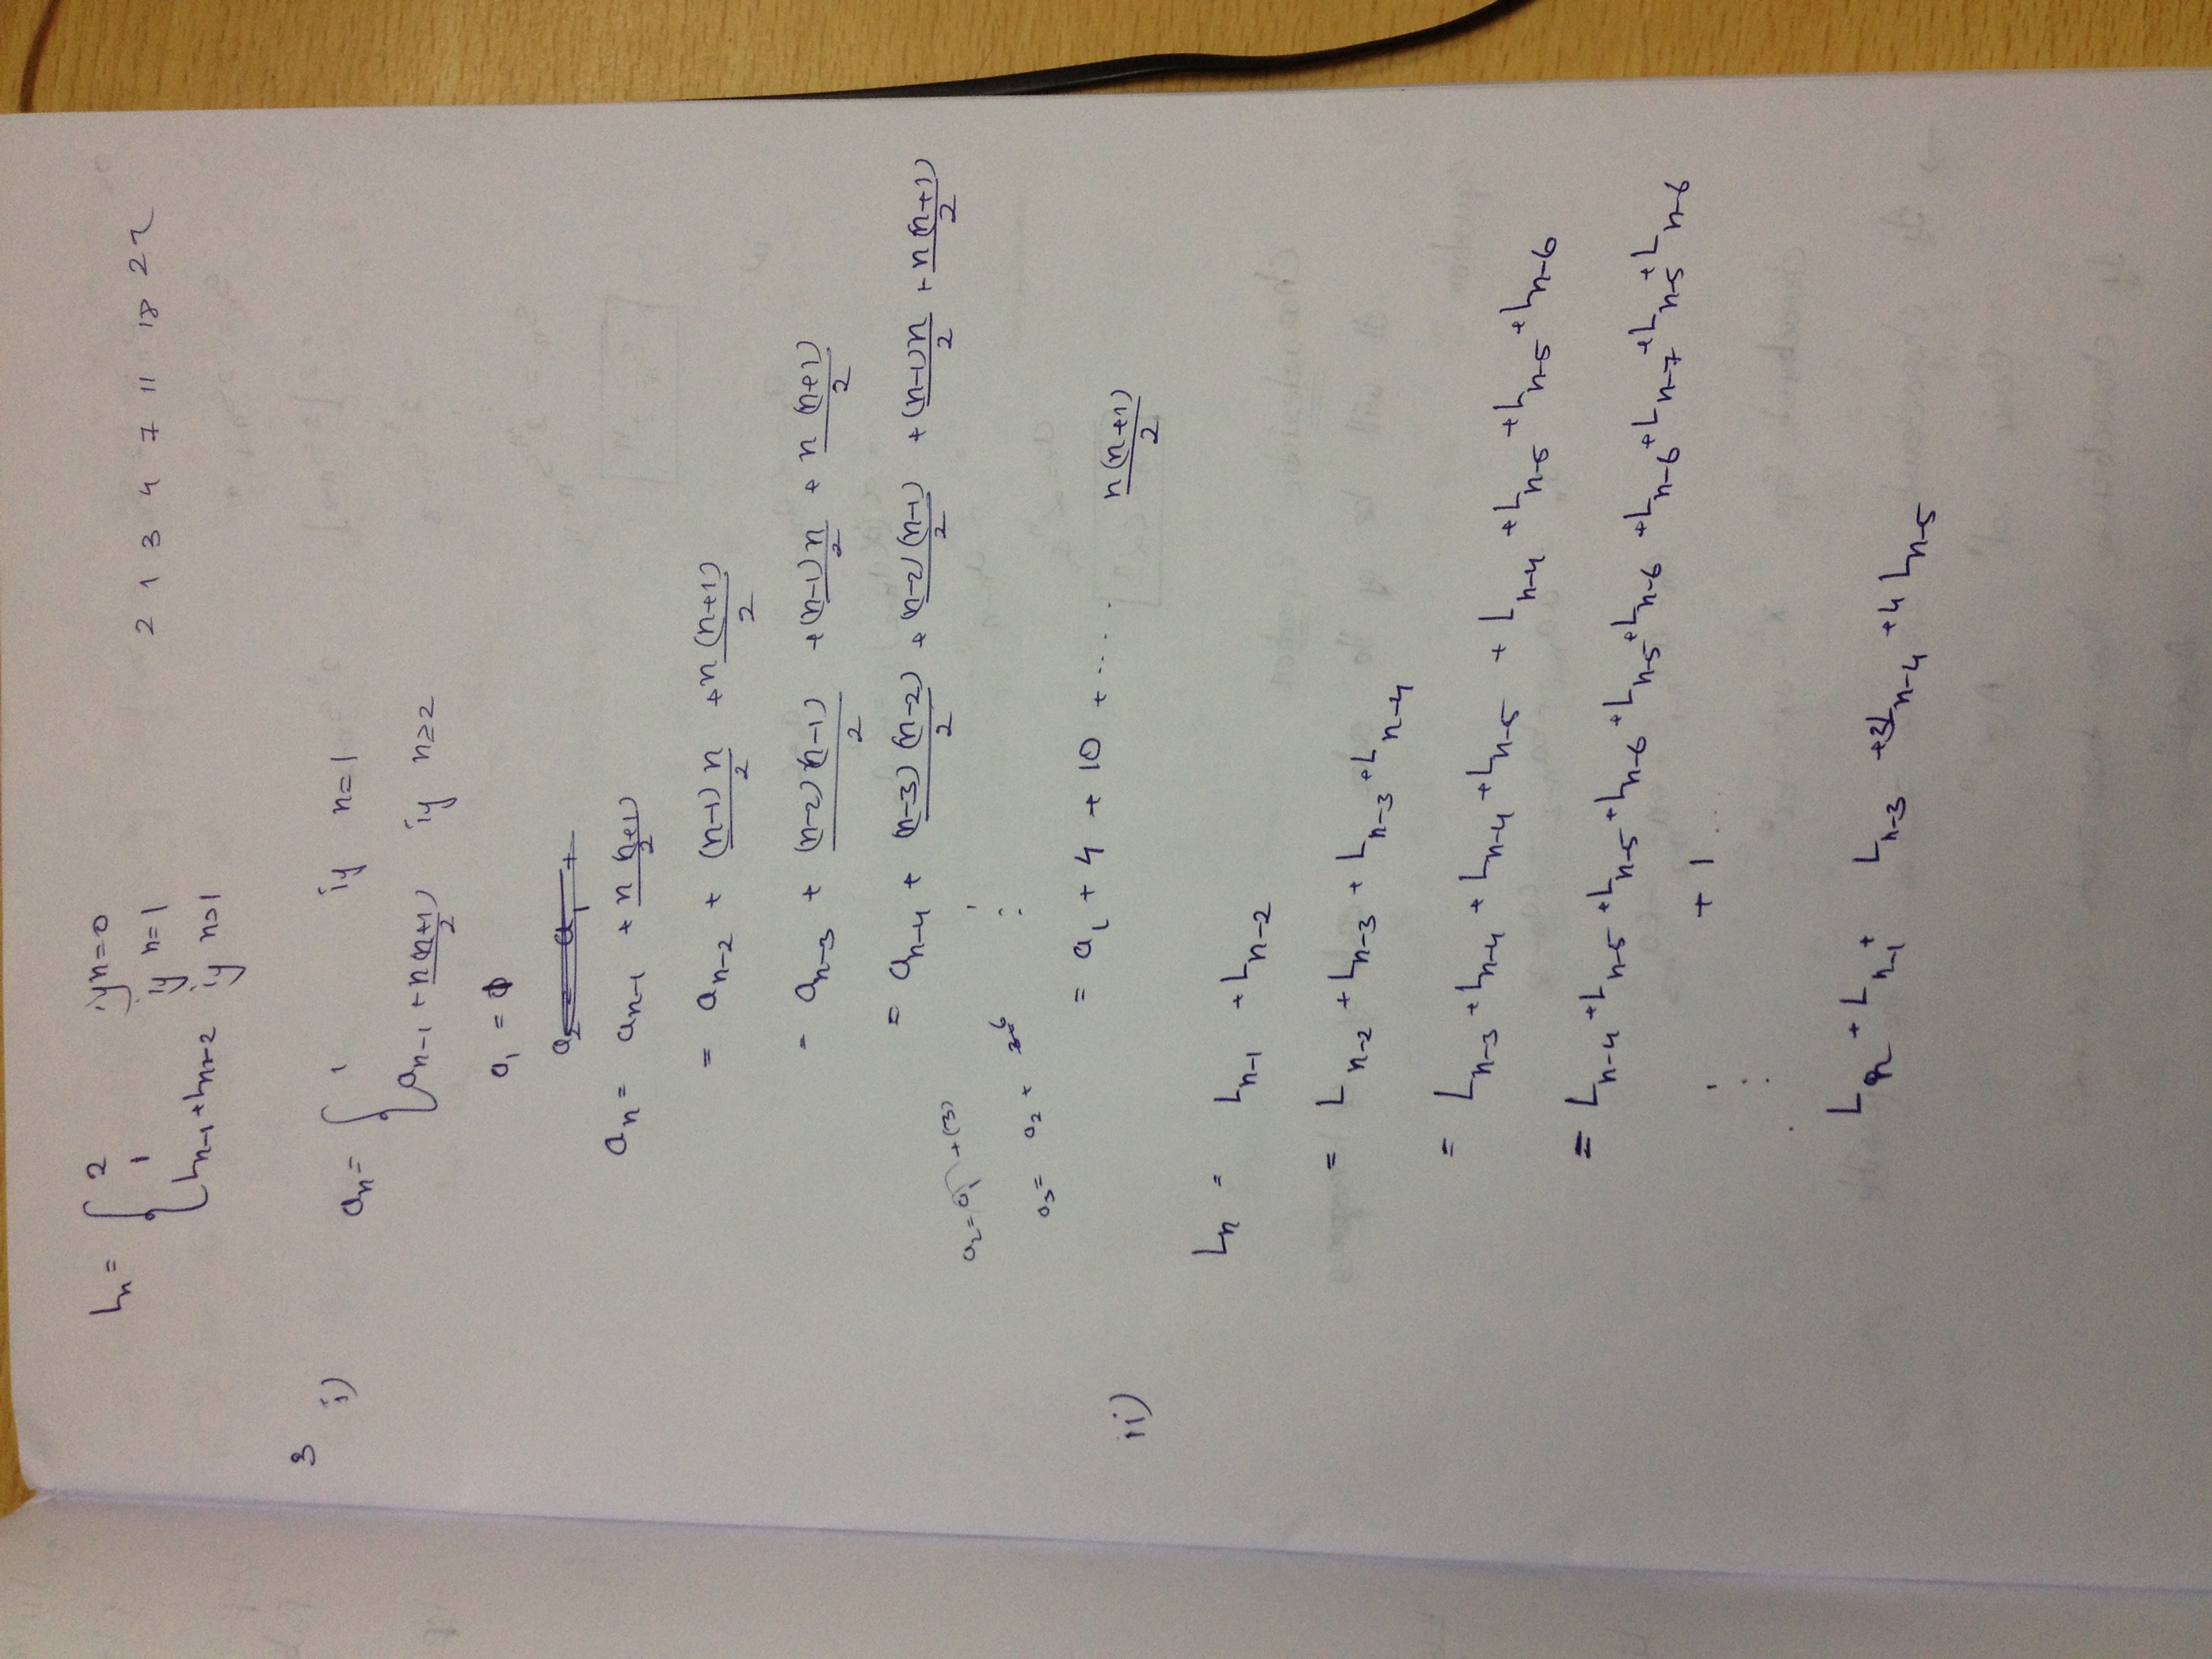 Ln = { 2 if n=0
1 if n=1
Ln-1 + Ln-2 if n>1
2 1 3 4 7 11 18 29
3 i) an = { 1 if n=1
an-1 + n(n+1)/2 if n≥2
a1 =
an = an-1 + n(n+1)/2
= an-2 + (n-1)n/2 + n(n+1)/2
= an-3 + (n-2)(n-1)/2 + (n-1)n/2 + n(n+1)/2
= an-4 + (n-3)(n-2)/2 + (n-2)(n-1)/2 + (n-1)n/2 + n(n+1)/2
a2 = a1 + (3)
⋮
a3 = a2 +
= a1 + 4 + 10 + .... n(n+1)/2
ii) Ln = Ln-1 + Ln-2
= Ln-2 + Ln-3 + Ln-3 + Ln-4
= Ln-3 + Ln-4 + Ln-4 + Ln-5 + Ln-4 + Ln-5 + Ln-5 + Ln-6
= Ln-4 + Ln-5 + Ln-5 + Ln-6 + Ln-5 + Ln-6 + Ln-6 + Ln-7 + Ln-5 + Ln-6
⋮ + 1
Ln + Ln-1 + Ln-3 + Ln-4 + 4Ln-5